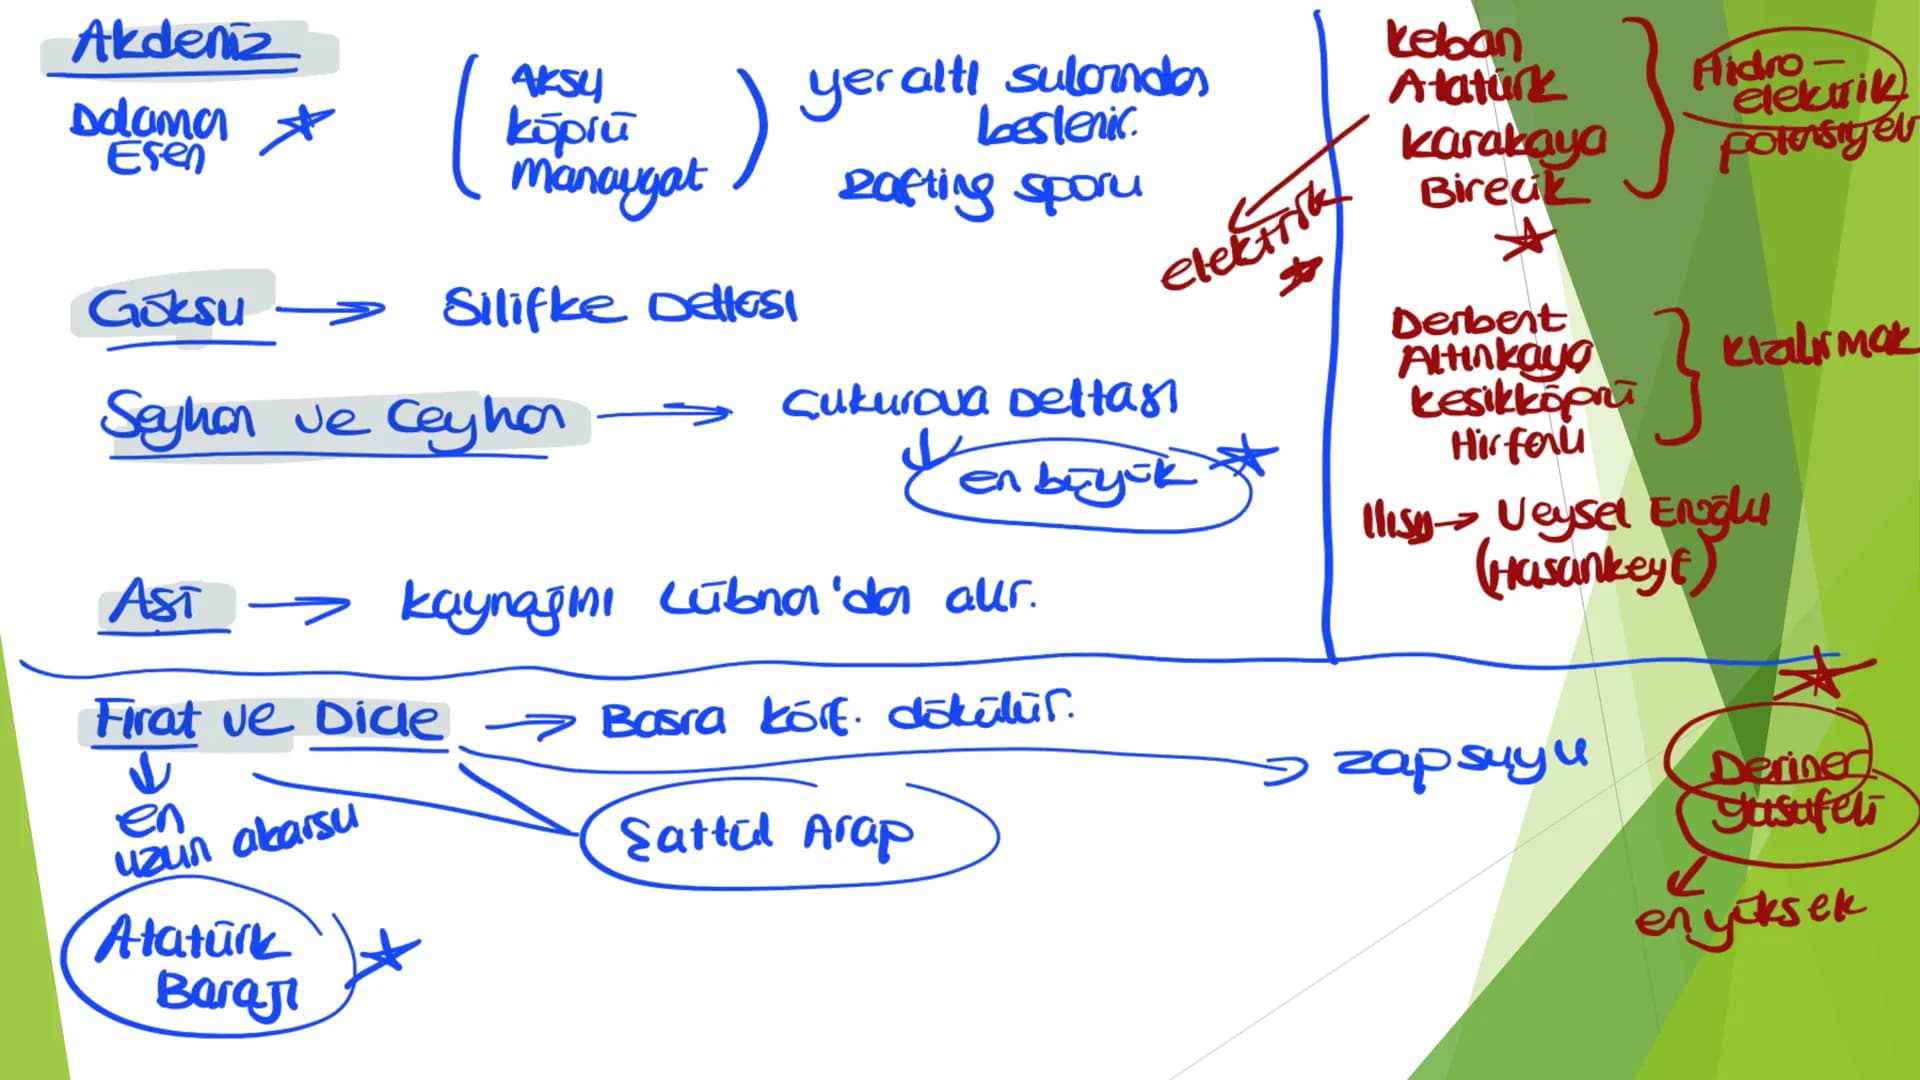 Akdeniz
Dalaman
Eşen
Aksu
Köprü
Manavgat
yer altı sularından
beslenir.
Rafting sporu
Göksu → Silifke Deltası
Seyhan ve Ceyhan → Çukurova Deltası
en büyük
Asi → Kaynağını Lübnan'dan alır.
Fırat ve Dicle → Basra Körf. dökülür.
Zap suyu
en
uzun akarsu
Şattül Arap
Atatürk
Barajı
Keban
Atatürk
Karakaya
Birecik
Hidro-
elektrik
potansiyeli
elektrik
Derbent
Altınkaya
Kesikköprü
Hirfanlı
Kızılırmak
Ilısu → Veysel Eroğlu
(Hasankeyf)
Deriner
Yusufeli
en yüksek